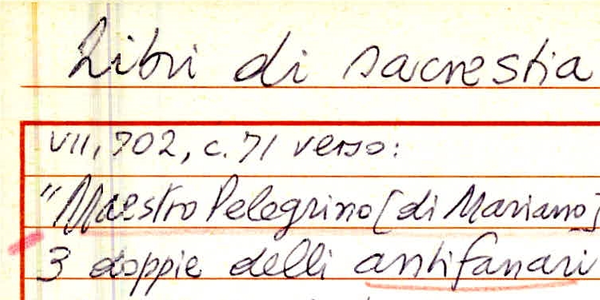 Libri di sacrestia
VII, 702, c. 71 verso:
"Maestro Pelegrino [di Mariano]
3 doppie delli antifanari